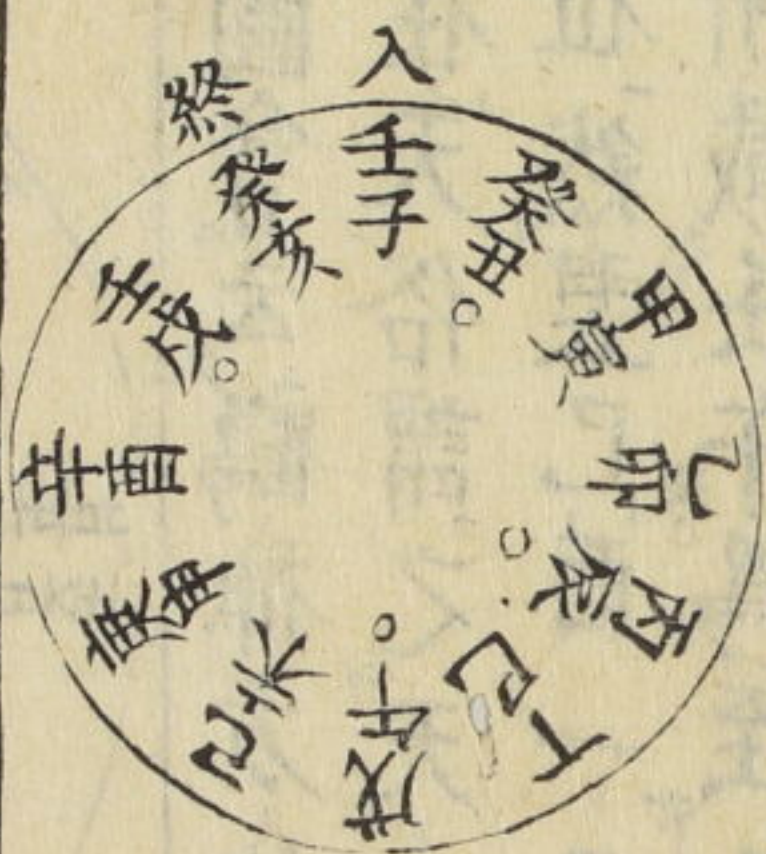 入
壬子
癸丑
甲寅
乙卯
丙辰
丁巳
戊午
己未
庚申
辛酉
壬戌
癸亥
終